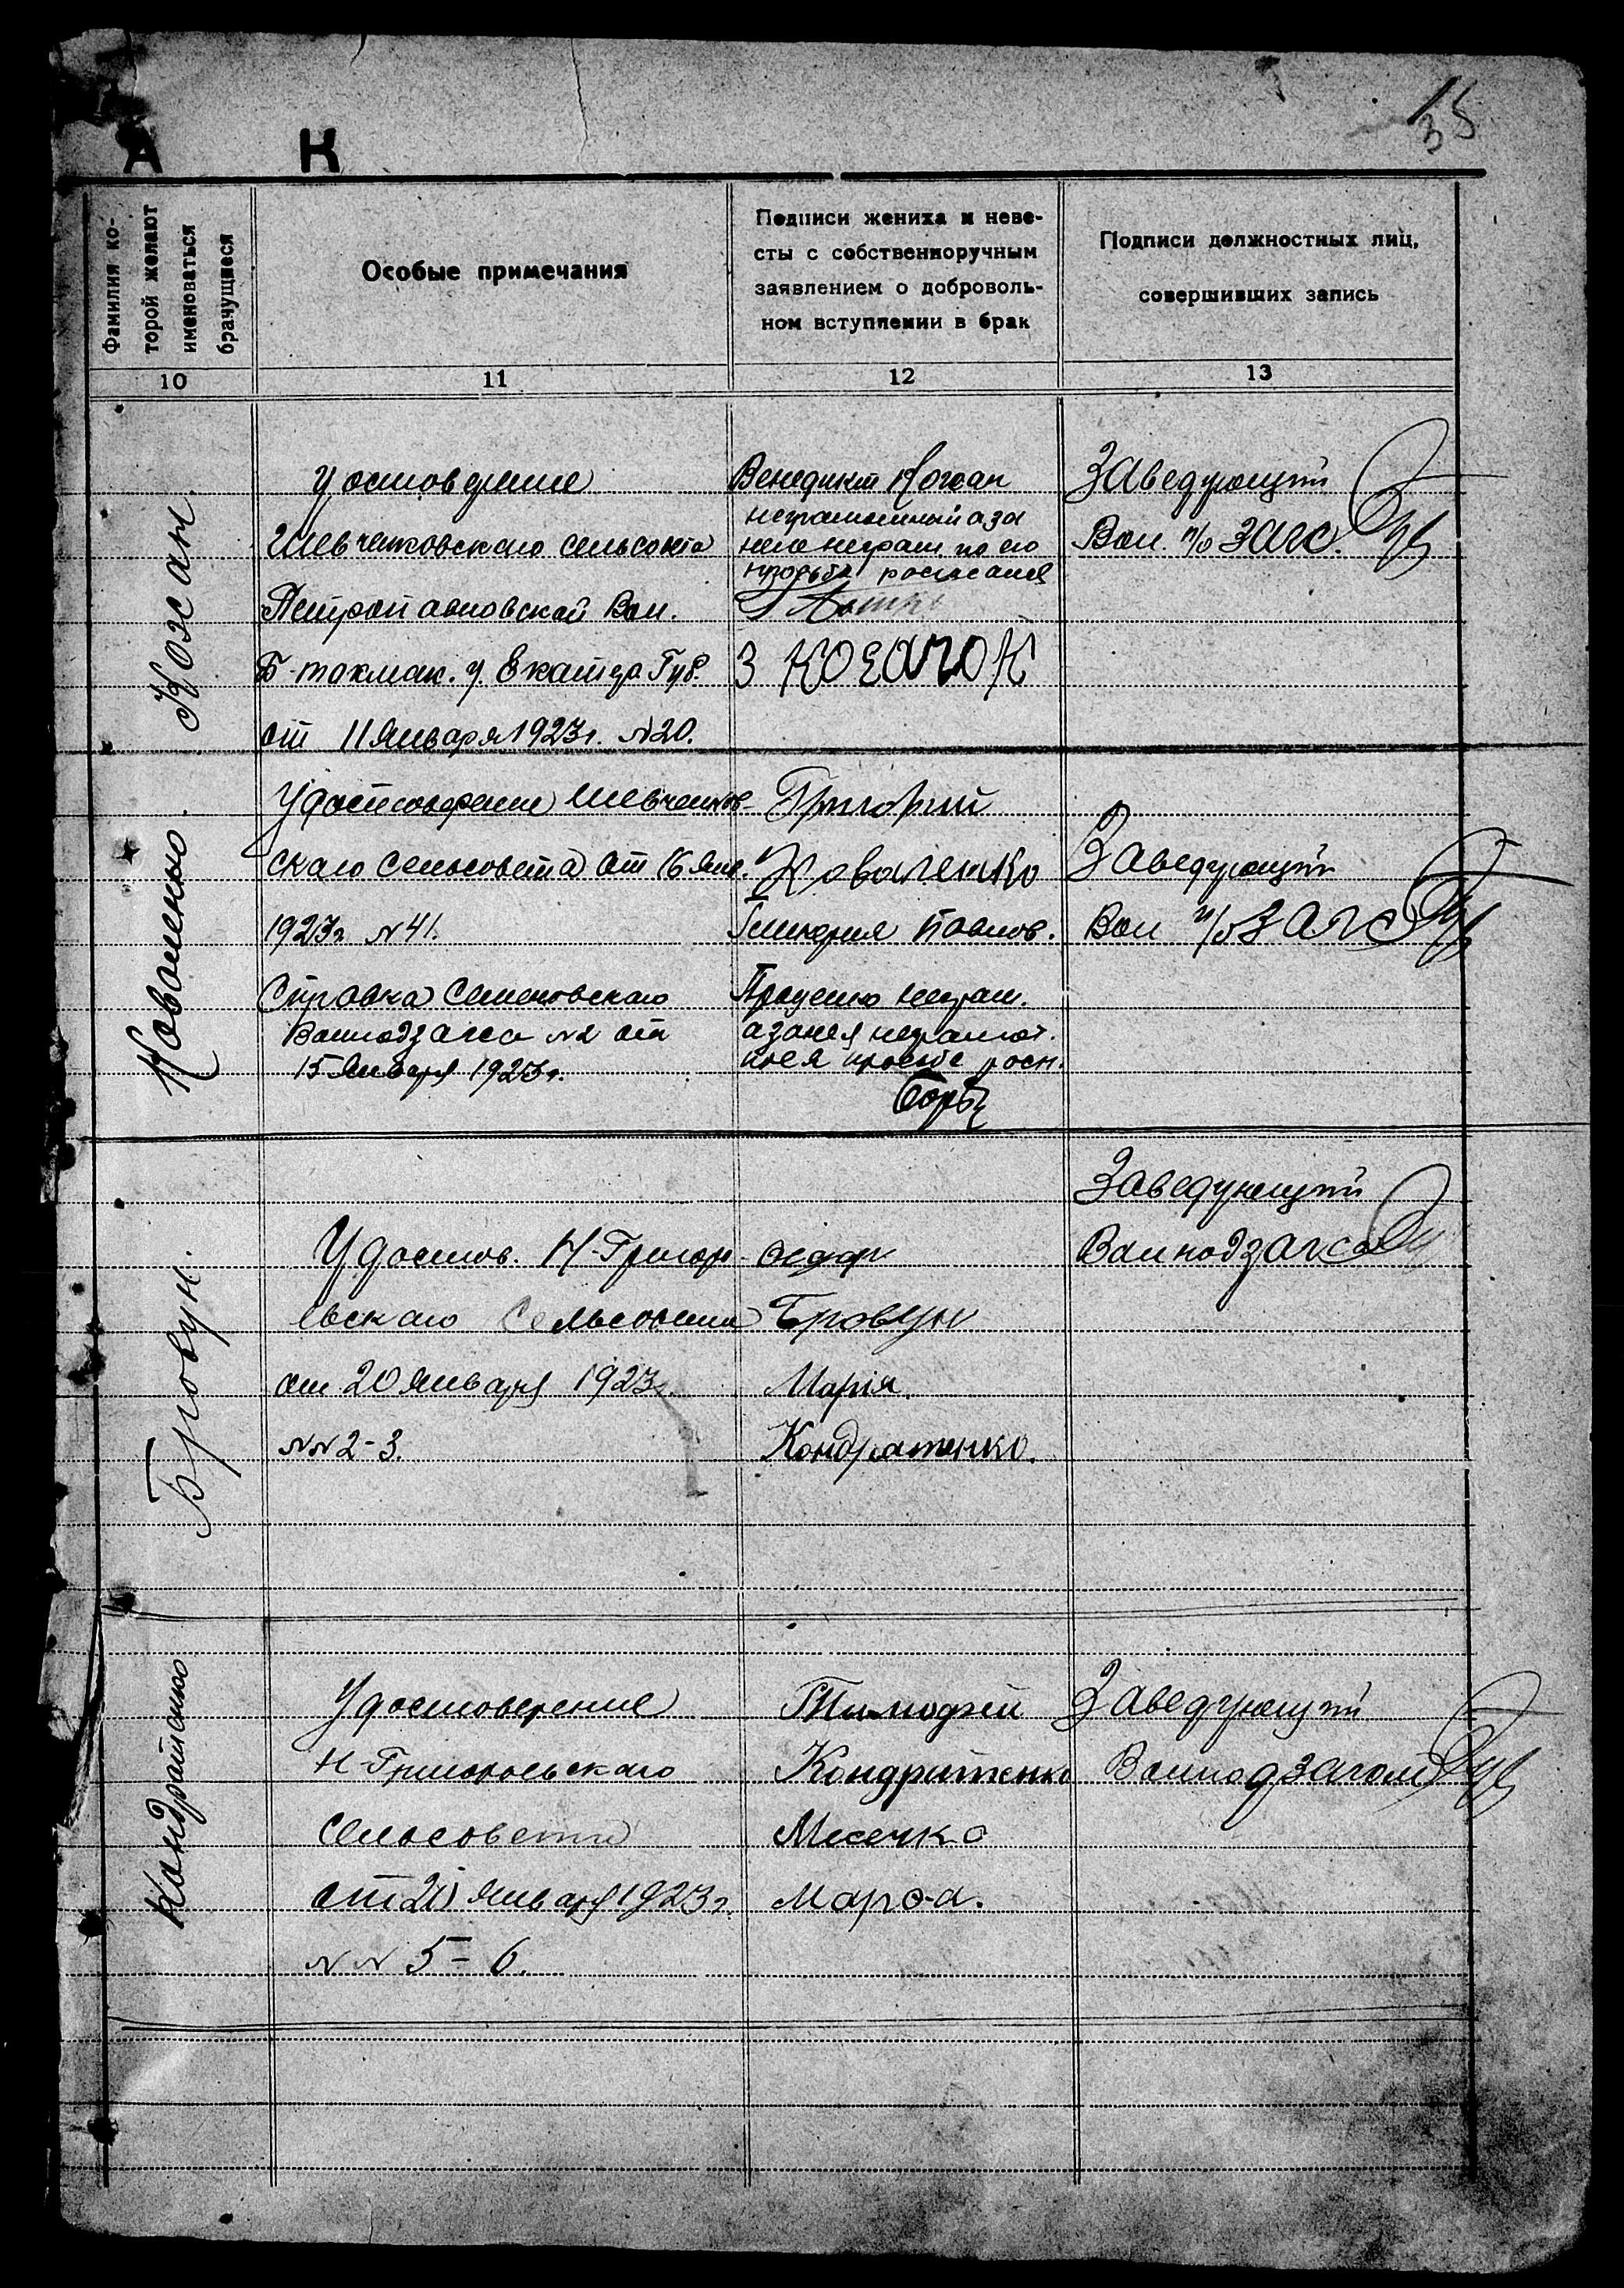 35
А К
Фамилия ко-
торой желают
именоваться
брачущиеся
Особые примечания
Подписи жениха и неве-
сты с собственноручным
заявлением о доброволь-
ном вступлении в брак
Подписи должностных лиц,
совершивших запись
10
11
12
13
Кожан
Шевченковскаго сельсовета
Петропавловской Вол.
Б-токмак. у. Екатер. Губ.
от 11 Января 1923г. №20.
Венедикт Кожан
неграмотный а за
него неграм. по его
прозьбе росписался
Заведующий
Вол. п/о ЗАГС.
Коваленко.
Удостоверение Шевченков-
скаго Сельсовета от 16 Янв.
1923г №41.
Справка Семеновскаго
Волподзагса №2 от
15 Января 1923г.
Григорий
Коваленко
Гликерия Павлов.
Проценко неграм.
а за нея неграмот.
по ея просьбе росп.
Заведующий
Вол п/о ЗАГС
Бровун.
Удостов. Н-Григорь-
евскаго Сельсовета
от 20 Января 1923г.
№№ 2-3.
Федор
Бровун
Марія
Кондратенко.
Заведующий
Волподзагса
Кондратенко
Удостоверение
Н-Григорьевскаго
Сельсовета
от 20 Января 1923г.
№№ 5-6.
Тимофей
Кондратенко
Месечко
Марфа.
Заведующий
Волподзагом